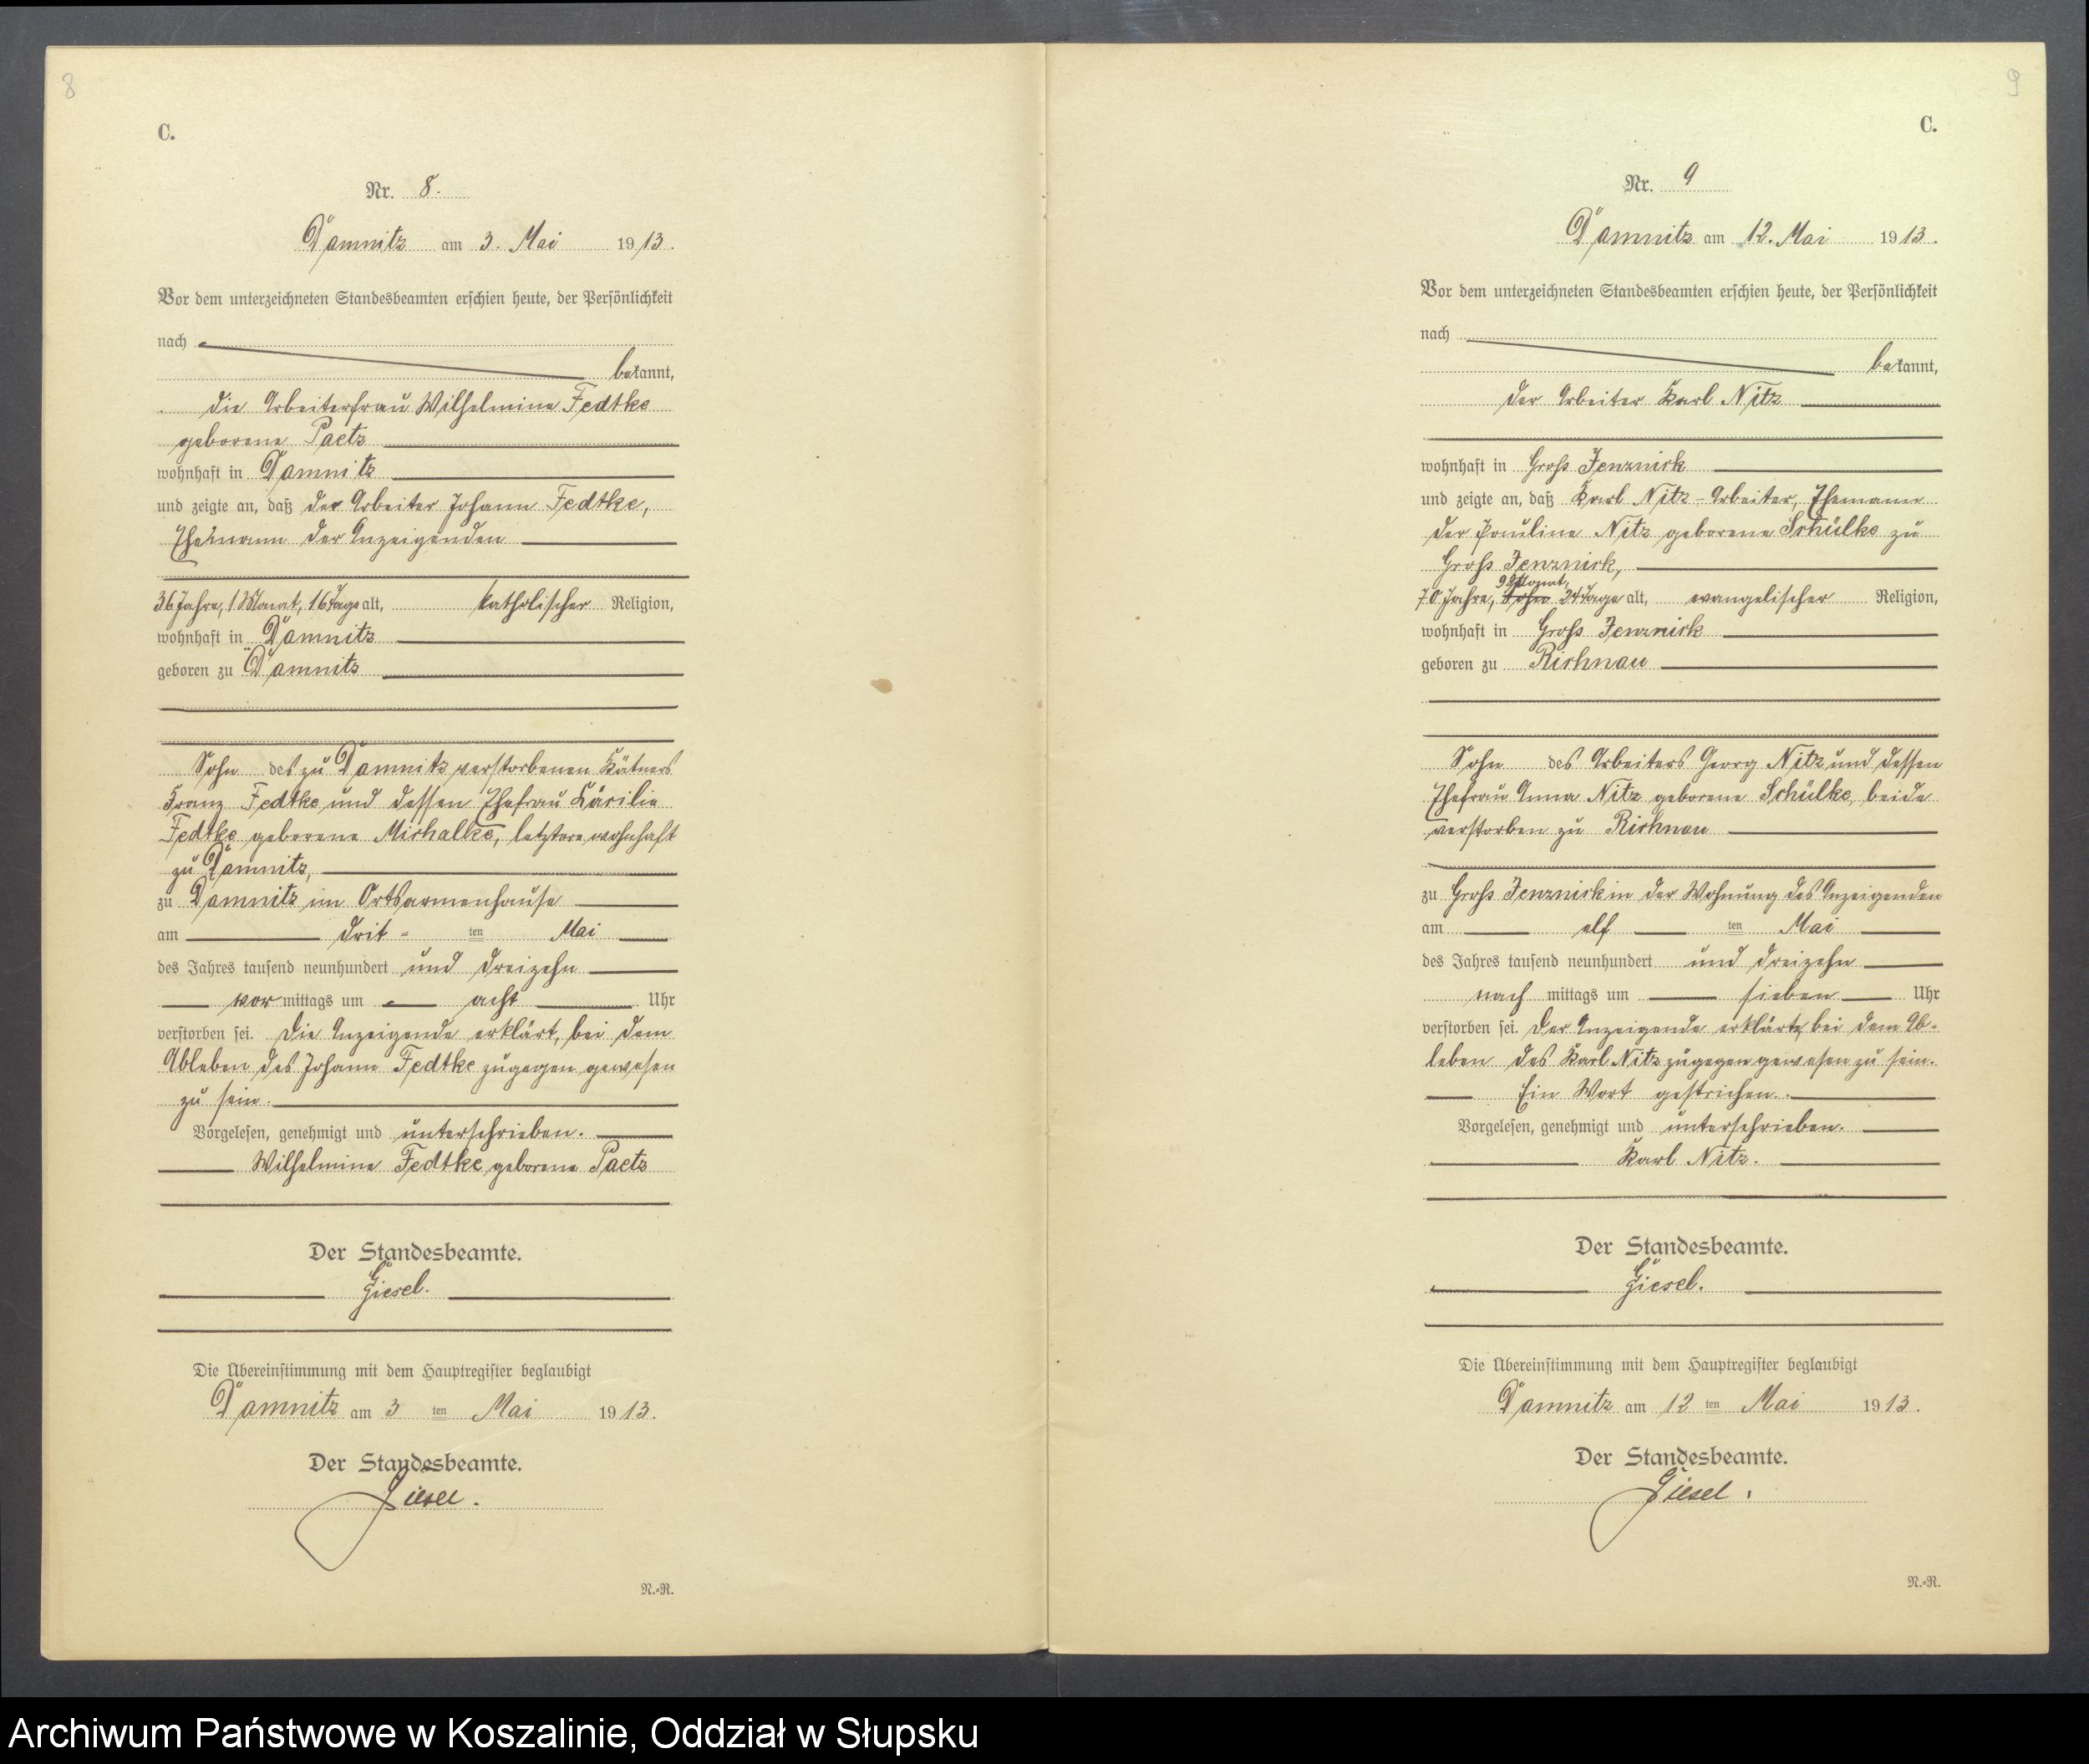 8
C.
Nr. 8.
Damnitz am 3. Mai 1913.
Vor dem unterzeichneten Standesbeamten erschien heute, der Persönlichkeit
nach
bekannt,
die Arbeiterfrau Wilhelmine Fedtke
geborene Paetz
wohnhaft in Damnitz
und zeigte an, daß der Arbeiter Johann Fedtke,
Ehemann der Anzeigenden
36 Jahre, 1 Monat, 16 Tage alt, katholischer Religion,
wohnhaft in Damnitz
geboren zu Damnitz
Sohn des zu Damnitz verstorbenen Kätners
Franz Fedtke und dessen Ehefrau Cäcilie
Fedtke geborene Michalke, letztere wohnhaft
zu Damnitz,
zu Damnitz im Ortsarmenhause
am drit- ten Mai
des Jahres tausend neunhundert und dreizehn
vor mittags um acht Uhr
verstorben sei. Die Anzeigende erklärt, bei dem
Ableben des Johann Fedtke zugegen gewesen
zu sein.
Vorgelesen, genehmigt und unterschrieben.
Wilhelmine Fedtke geborene Paetz
Der Standesbeamte.
Giesel.
Die Übereinstimmung mit dem Hauptregister beglaubigt
Damnitz am 3 ten Mai 1913.
Der Standesbeamte.
Giesel.
N.-R.
9
C.
Nr. 9
Damnitz am 12. Mai 1913.
Vor dem unterzeichneten Standesbeamten erschien heute, der Persönlichkeit
nach
bekannt,
der Arbeiter Karl Nitz
wohnhaft in Groß Jenznick
und zeigte an, daß Karl Nitz - Arbeiter, Ehemann
der Pauline Nitz geborene Schülke zu
Groß Jenznick,
9 Monat,
70 Jahre, 24 Tage alt, evangelischer Religion,
wohnhaft in Groß Jenznick
geboren zu Richnau
Sohn des Arbeiters Georg Nitz und dessen
Ehefrau Anna Nitz geborene Schülke, beide
verstorben zu Richnau
zu Groß Jenznick in der Wohnung des Anzeigenden
am elf ten Mai
des Jahres tausend neunhundert und dreizehn
nach mittags um sieben Uhr
verstorben sei. Der Anzeigende erklärte, bei dem Ab-
leben des Karl Nitz zugegen gewesen zu sein.
Ein Wort gestrichen.
Vorgelesen, genehmigt und unterschrieben.
Karl Nitz.
Der Standesbeamte.
Giesel.
Die Übereinstimmung mit dem Hauptregister beglaubigt
Damnitz am 12 ten Mai 1913.
Der Standesbeamte.
Giesel.
N.-R.
Archiwum Państwowe w Koszalinie, Oddział w Słupsku